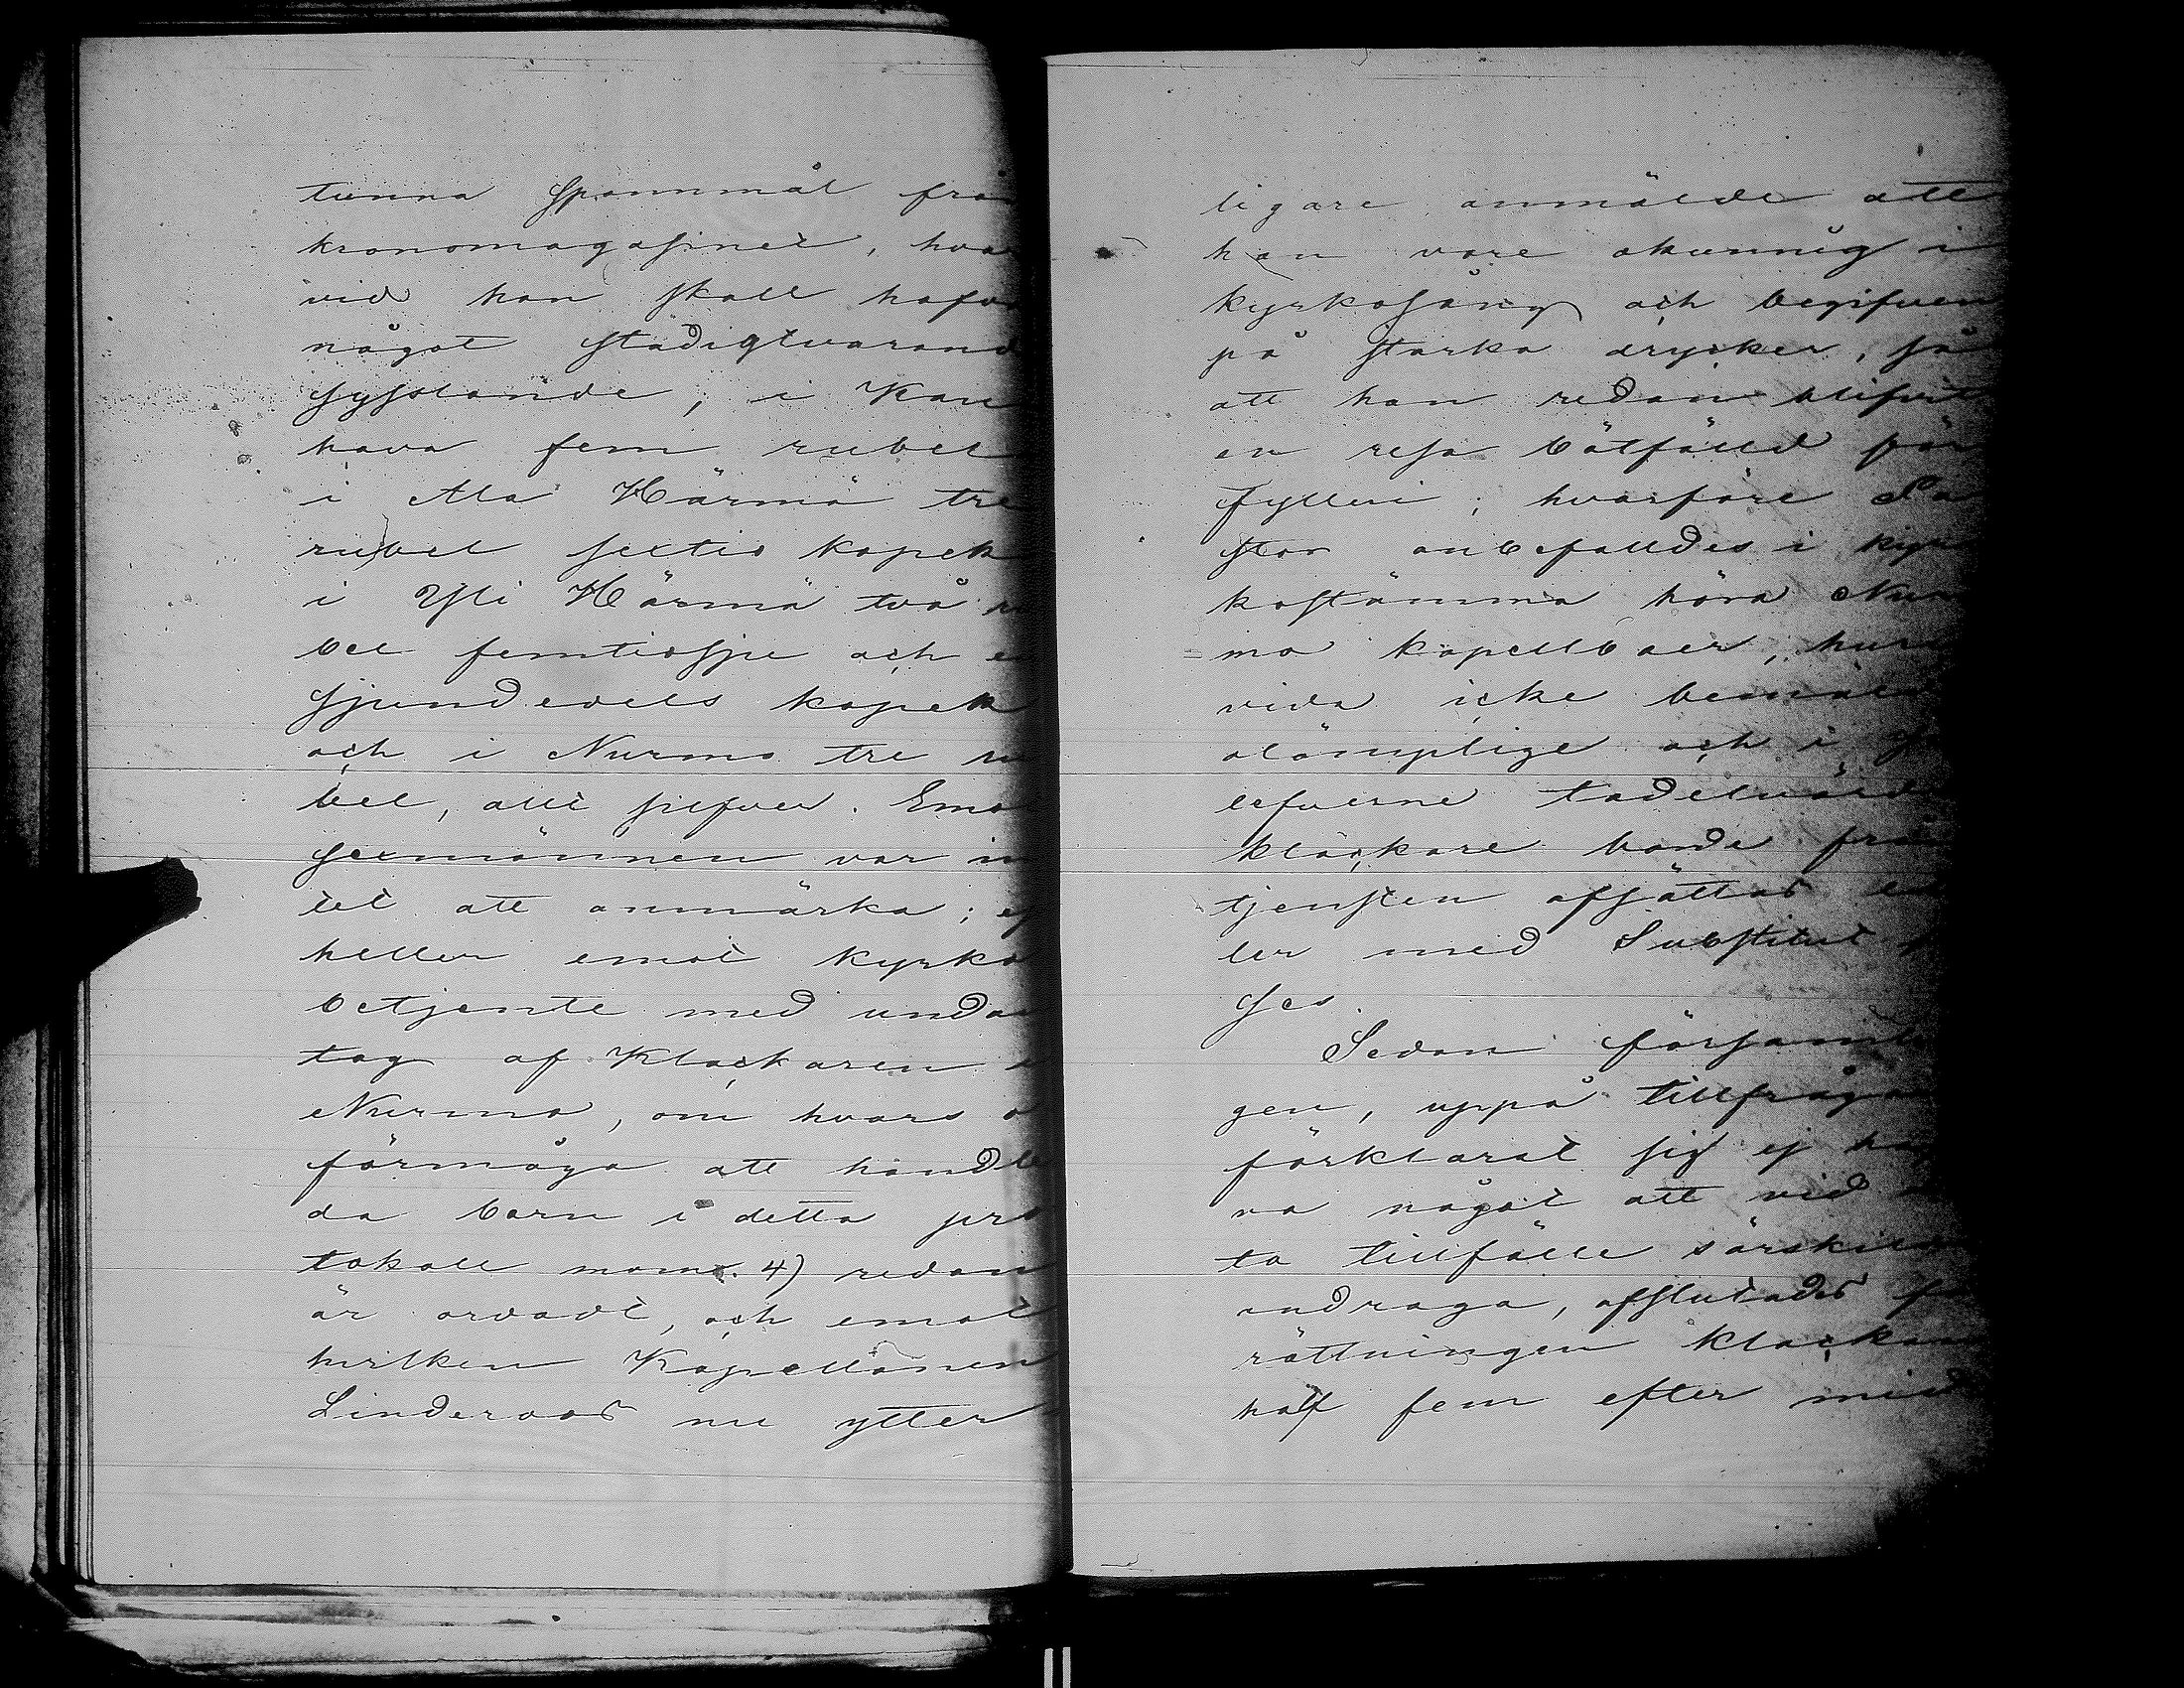 tunna Spannmål från
kronomagasinet, hvar
vid han skall hafva
något städigtvarand
sysslande; i Kau
hava fem rubel
i Ala Härmä tre
rubel sextio kopek
i Yli Härmä två ru
bel femtiosju och en
sjundedels kopek
och i Nurmo tre ru
bel, allt silfver. Emot
sexmännen var in
tet att anmärka; ej
heller emot kyrko
betjente med undan
tag af Klockaren i
Nurmo, om hvars o
förmåga att handle
da barn i detta pro
tokoll mom. 4) redan
är ordadt, och emot
hvilken Kapellanen
Linderoos nu ytter
ligare anmälde att
han vore okunnig i
kyrkosång och begifven
på starka drycker, så
att han redan blifvit
en resa bötfälld för
fylleri; hvarföre Pa
stor anbefalldes i kyr
kostämma höra Nur
mo kapellboer, huru
vida icke bemäl
olämplige och i 
lefverne tadelvärd
klockare borde från
tjensten afsättas el
ler med Substitut 
ses
Sedan församlin
gen, uppå tillfrågan
förklarat sig ej haf
va något att vid 
ta tillfälle särskildt
andraga, afslutades för
rättningen klockan
half fem efter mid